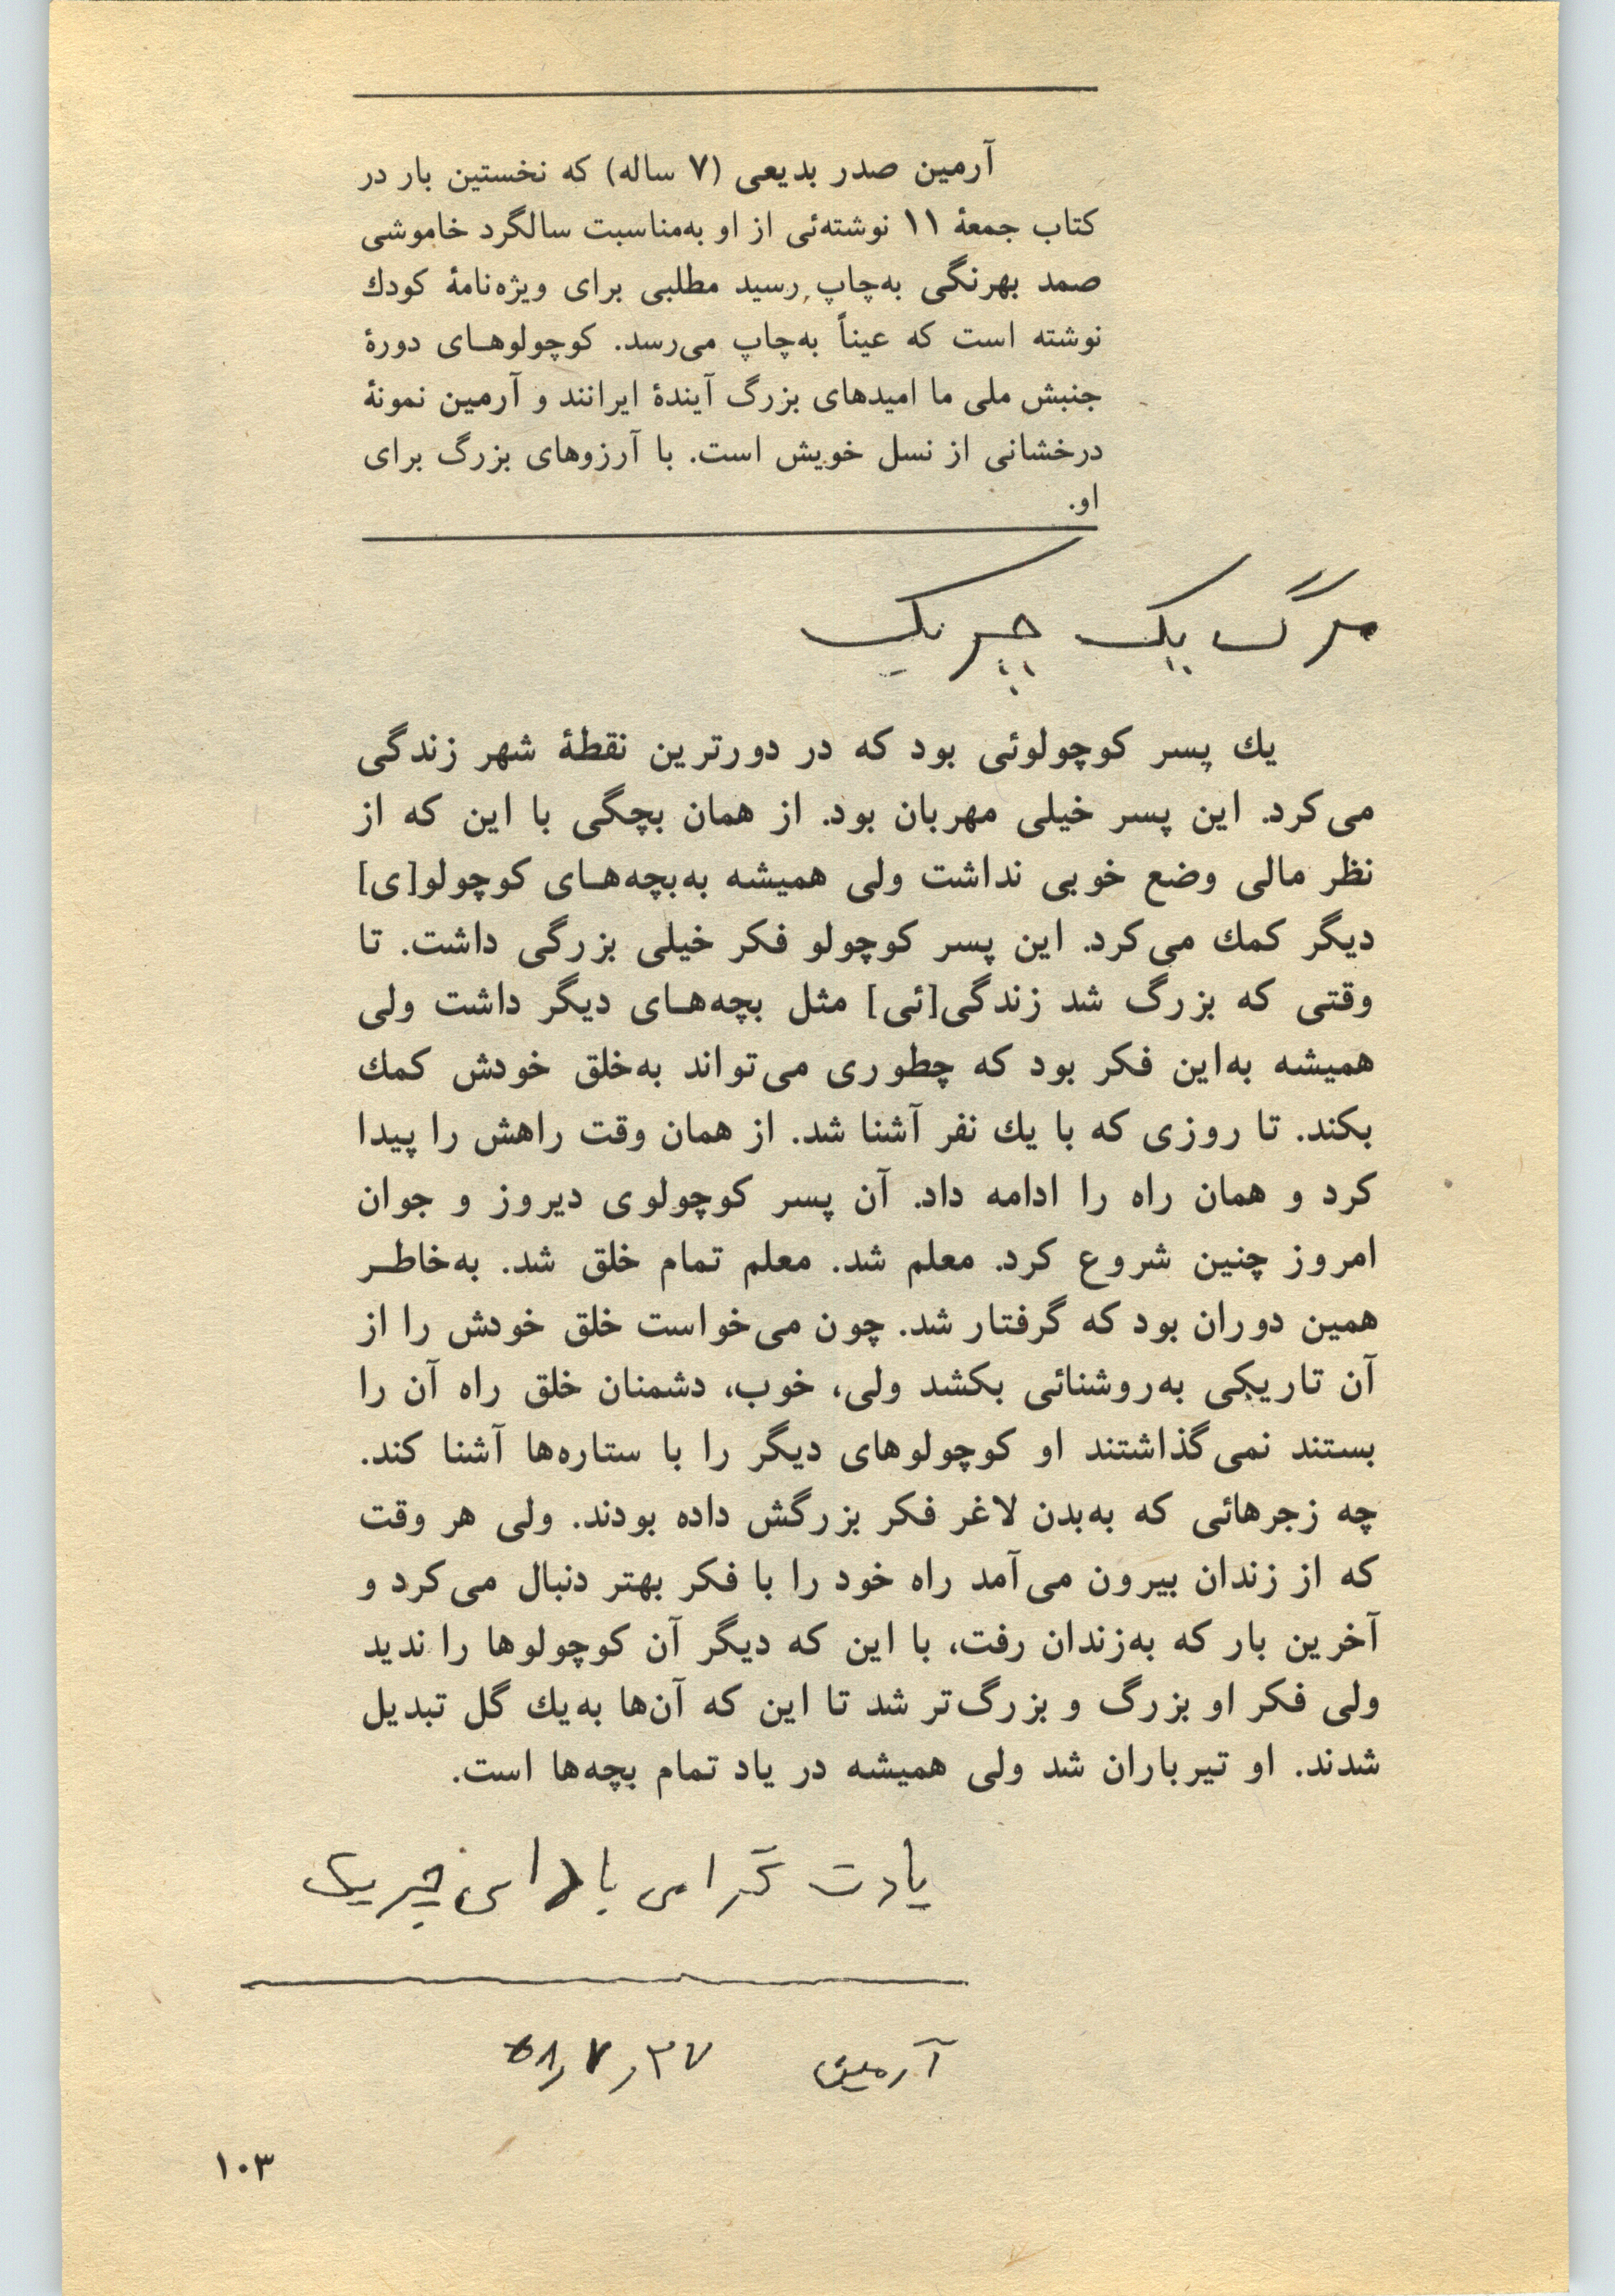 آرمین صدر بدیعی (۷ ساله) که نخستین بار در
کتاب جمعهٔ ۱۱ نوشته‌ئی از او به‌مناسبت سالگرد خاموشی
صمد بهرنگی به‌چاپ رسید مطلبی برای ویژه‌نامهٔ کودك
نوشته است که عیناً به‌چاپ می‌رسد. کوچولوهـای دورهٔ
جنبش ملی ما امیدهای بزرگ آیندهٔ ایرانند و آرمین نمونهٔ
درخشانی از نسل خویش است. با آرزوهای بزرگ برای
او.
مرگ یک چریک
یك پسر کوچولوئی بود که در دورترین نقطهٔ شهر زندگی
می‌کرد. این پسر خیلی مهربان بود. از همان بچگی با این که از
نظر مالی وضع خوبی نداشت ولی همیشه به‌بچه‌هـای کوچولو[ی]
دیگر کمك می‌کرد. این پسر کوچولو فکر خیلی بزرگی داشت. تا
وقتی که بزرگ شد زندگی[ئی] مثل بچه‌هـای دیگر داشت ولی
همیشه به‌این فکر بود که چطوری می‌تواند به‌خلق خودش کمك
بکند. تا روزی که با یك نفر آشنا شد. از همان وقت راهش را پیدا
کرد و همان راه را ادامه داد. آن پسر کوچولوی دیروز و جوان
امروز چنین شروع کرد. معلم شد. معلم تمام خلق شد. به‌خاطـر
همین دوران بود که گرفتار شد. چون می‌خواست خلق خودش را از
آن تاریکی به‌روشنائی بکشد ولی، خوب، دشمنان خلق راه آن را
بستند نمی‌گذاشتند او کوچولوهای دیگر را با ستاره‌ها آشنا کند.
چه زجرهائی که به‌بدن لاغر فکر بزرگش داده بودند. ولی هر وقت
که از زندان بیرون می‌آمد راه خود را با فکر بهتر دنبال می‌کرد و
آخرین بار که به‌زندان رفت، با این که دیگر آن کوچولوها را ندید
ولی فکر او بزرگ و بزرگ‌تر شد تا این که آن‌ها به‌یك گل تبدیل
شدند. او تیرباران شد ولی همیشه در یاد تمام بچه‌ها است.
یادت گرامی باد ای چریک
آرمین ۵۸٫۷٫۲۷
۱۰۳